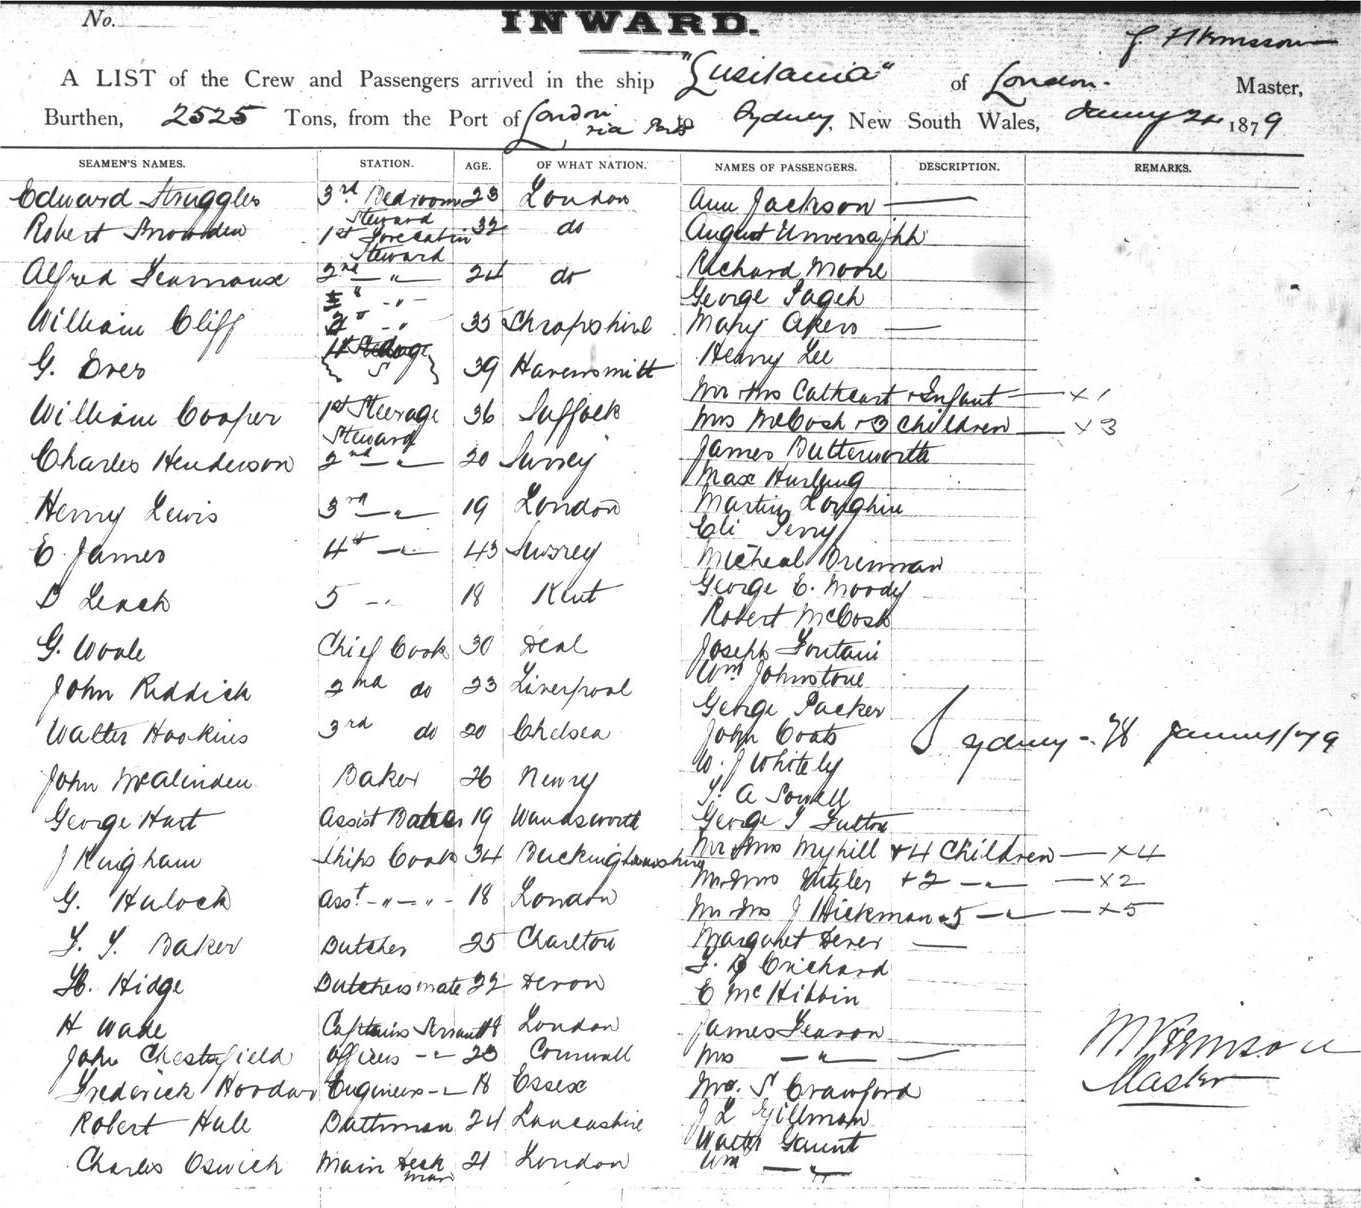 No.
INWARD.
A LIST of the Crew and Passengers arrived in the ship "Lusitania" of London. Master,
Burthen, 2525 Tons, from the Port of London via Ports to Sydney, New South Wales, 1879
SEAMEN'S NAMES. STATION. AGE. OF WHAT NATION. NAMES OF PASSENGERS. DESCRIPTION. REMARKS.
Edward Struggles 3rd Bedroom Steward 23 London
Robert Snowden 1st Forecabin Steward 32 do
Alfred 2nd — " 24 do
William Cliff 2nd " 35 Shropshire
G. Ever 39
William Cooper 1st Steerage Steward 36 Suffolk
Charles Henderson 2nd — " 20 Surrey
Henry Lewis 3rd — " 19 London
E. James 4th — " 43 Surrey
D Leach 5 " 18 Kent
G. Woole Chief Cook 30 Deal
John Riddick 2nd do 23 Liverpool
Walter Hoskins 3rd do 20 Chelsea
John McAlinden Baker 26 Newry
George Hart Assist Baker 19 Wandsworth
J Kingham Ships Cook 34 Buckinghamshire
G. Hulock Asst — " — " — 18 London
Baker Butcher 25 Charlton
H. Hidge Butchers mate 22 Devon
H Wade Captains Servant 18 London
John Chesterfield Officers — " 23 Cornwall
Frederick Engineers — " 18 Essex
Robert Hale Bathman 24 Lancashire
Charles Oswick Main Deck man 21 London
Ann Jackson —
August
Richard Moore
George
Mary Akers —
Henry Lee
Mr & Mrs Cathcart & Infant — x 1
Mrs McCosh & 3 Children — x 3
James Butterworth
Max
Martin
Eli Perry
Micheal Brennan
George E. Moody
Robert McCosh
Joseph Fontain
Wm Johnstone
George Packer
John Coats
W. J Whitely
A Sowell
George Fulton
Mr & Mrs Myhill & 4 Children — x 4
Mr & Mrs + 2 — " — x 2
Mr & Mrs J Hickman & 5 — " — x 5
Margaret —
Crichard
E McKibbin
James Fearon
Mrs — " — —
S Crawford
J L Gillman
Walter Gaunt
Wm — " —
Sydney - 28 January/79
Master